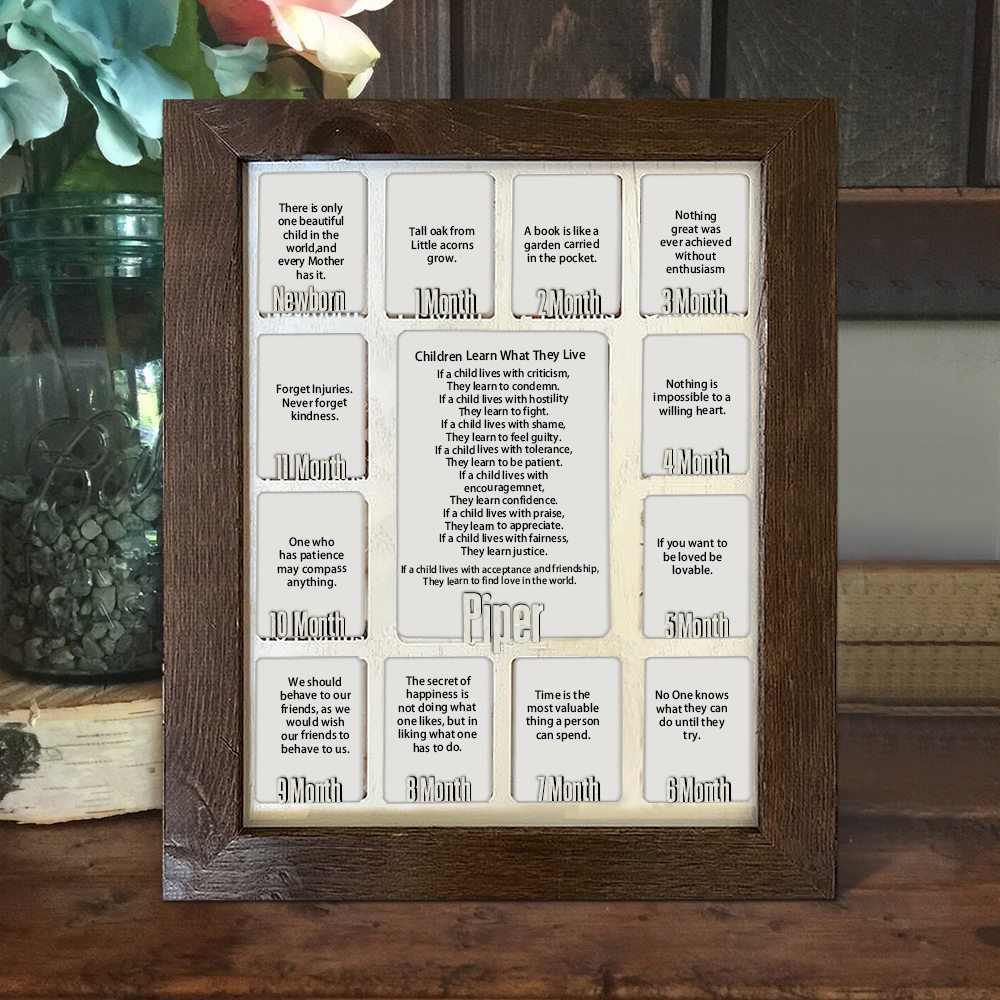 There is only
one beautiful
child in the
world,and
every Mother
has it.
Newborn
Tall oak from
Little acorns
grow.
1 Month
A book is like a
garden carried
in the pocket.
2 Month
Nothing
great was
ever achieved
without
enthusiasm
3 Month
Forget Injuries.
Never forget
kindness.
11 Month
Children Learn What They Live
If a child lives with criticism,
They learn to condemn.
If a child lives with hostility
They learn to fight.
If a child lives with shame,
They learn to feel guilty.
If a child lives with tolerance,
They learn to be patient.
If a child lives with
encouragemnet,
They learn confidence.
If a child lives with praise,
They learn to appreciate.
If a child lives with fairness,
They learn justice.
If a child lives with acceptance and friendship,
They learn to find love in the world.
Piper
Nothing is
impossible to a
willing heart.
4 Month
One who
has patience
may compass
anything.
10 Month
If you want to
be loved be
lovable.
5 Month
We should
behave to our
friends, as we
would wish
our friends to
behave to us.
9 Month
The secret of
happiness is
not doing what
one likes, but in
liking what one
has to do.
8 Month
Time is the
most valuable
thing a person
can spend.
7 Month
No One knows
what they can
do until they
try.
6 Month